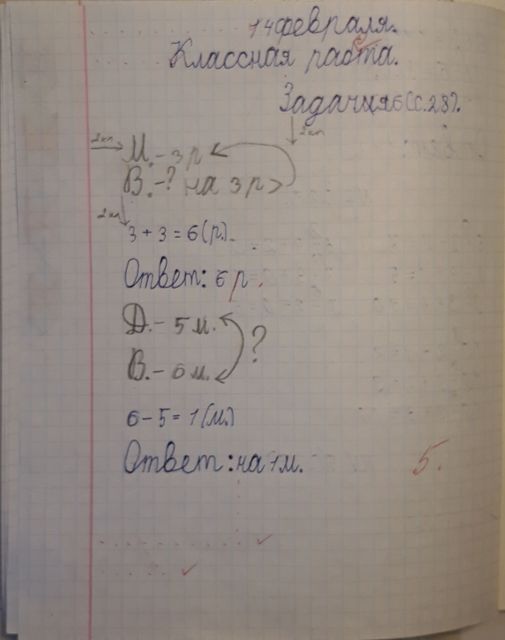 14 февраля.
Классная работа.
Задача 6 (с.28).
2кл 2кл
М. - 3 р
В. - ? на 3 р >
2кл
3 + 3 = 6 (р.)
Ответ: 6 р.
Д. - 5 м.
?
В. - 6 м.
6 - 5 = 1 (м.)
Ответ: на 1 м.
5.